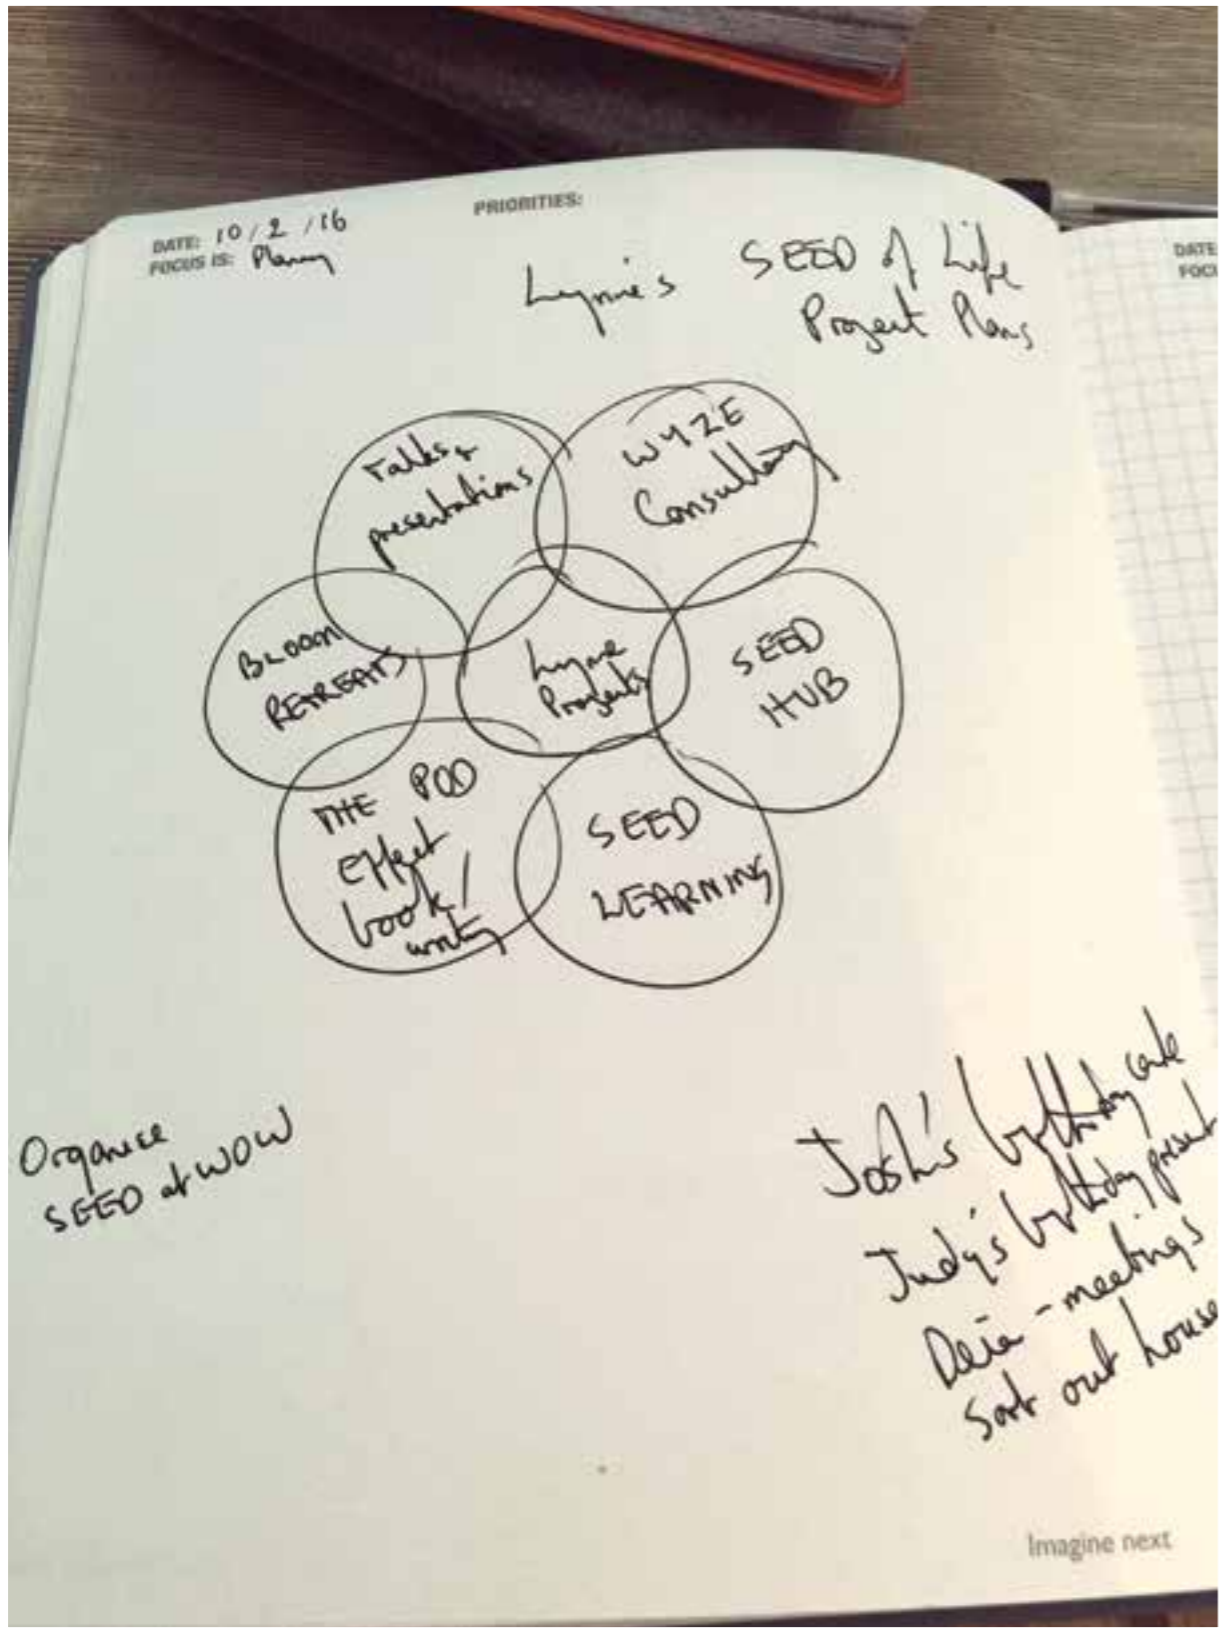 DATE: 10/2/16
FOCUS IS: Planning
PRIORITIES:
Lynne's SEED of Life
Project Plans
Talks +
presentations
WYZE
Consultancy
BLOOM
RETREATS
Lynne
Projects
SEED
HUB
THE POD
Effect
book/
writing
SEED
LEARNING
Organise
SEED at WOW
Josh's birthday cake
Judy's birthday present
meetings
Sort out house
Imagine next
DATE
FOCU